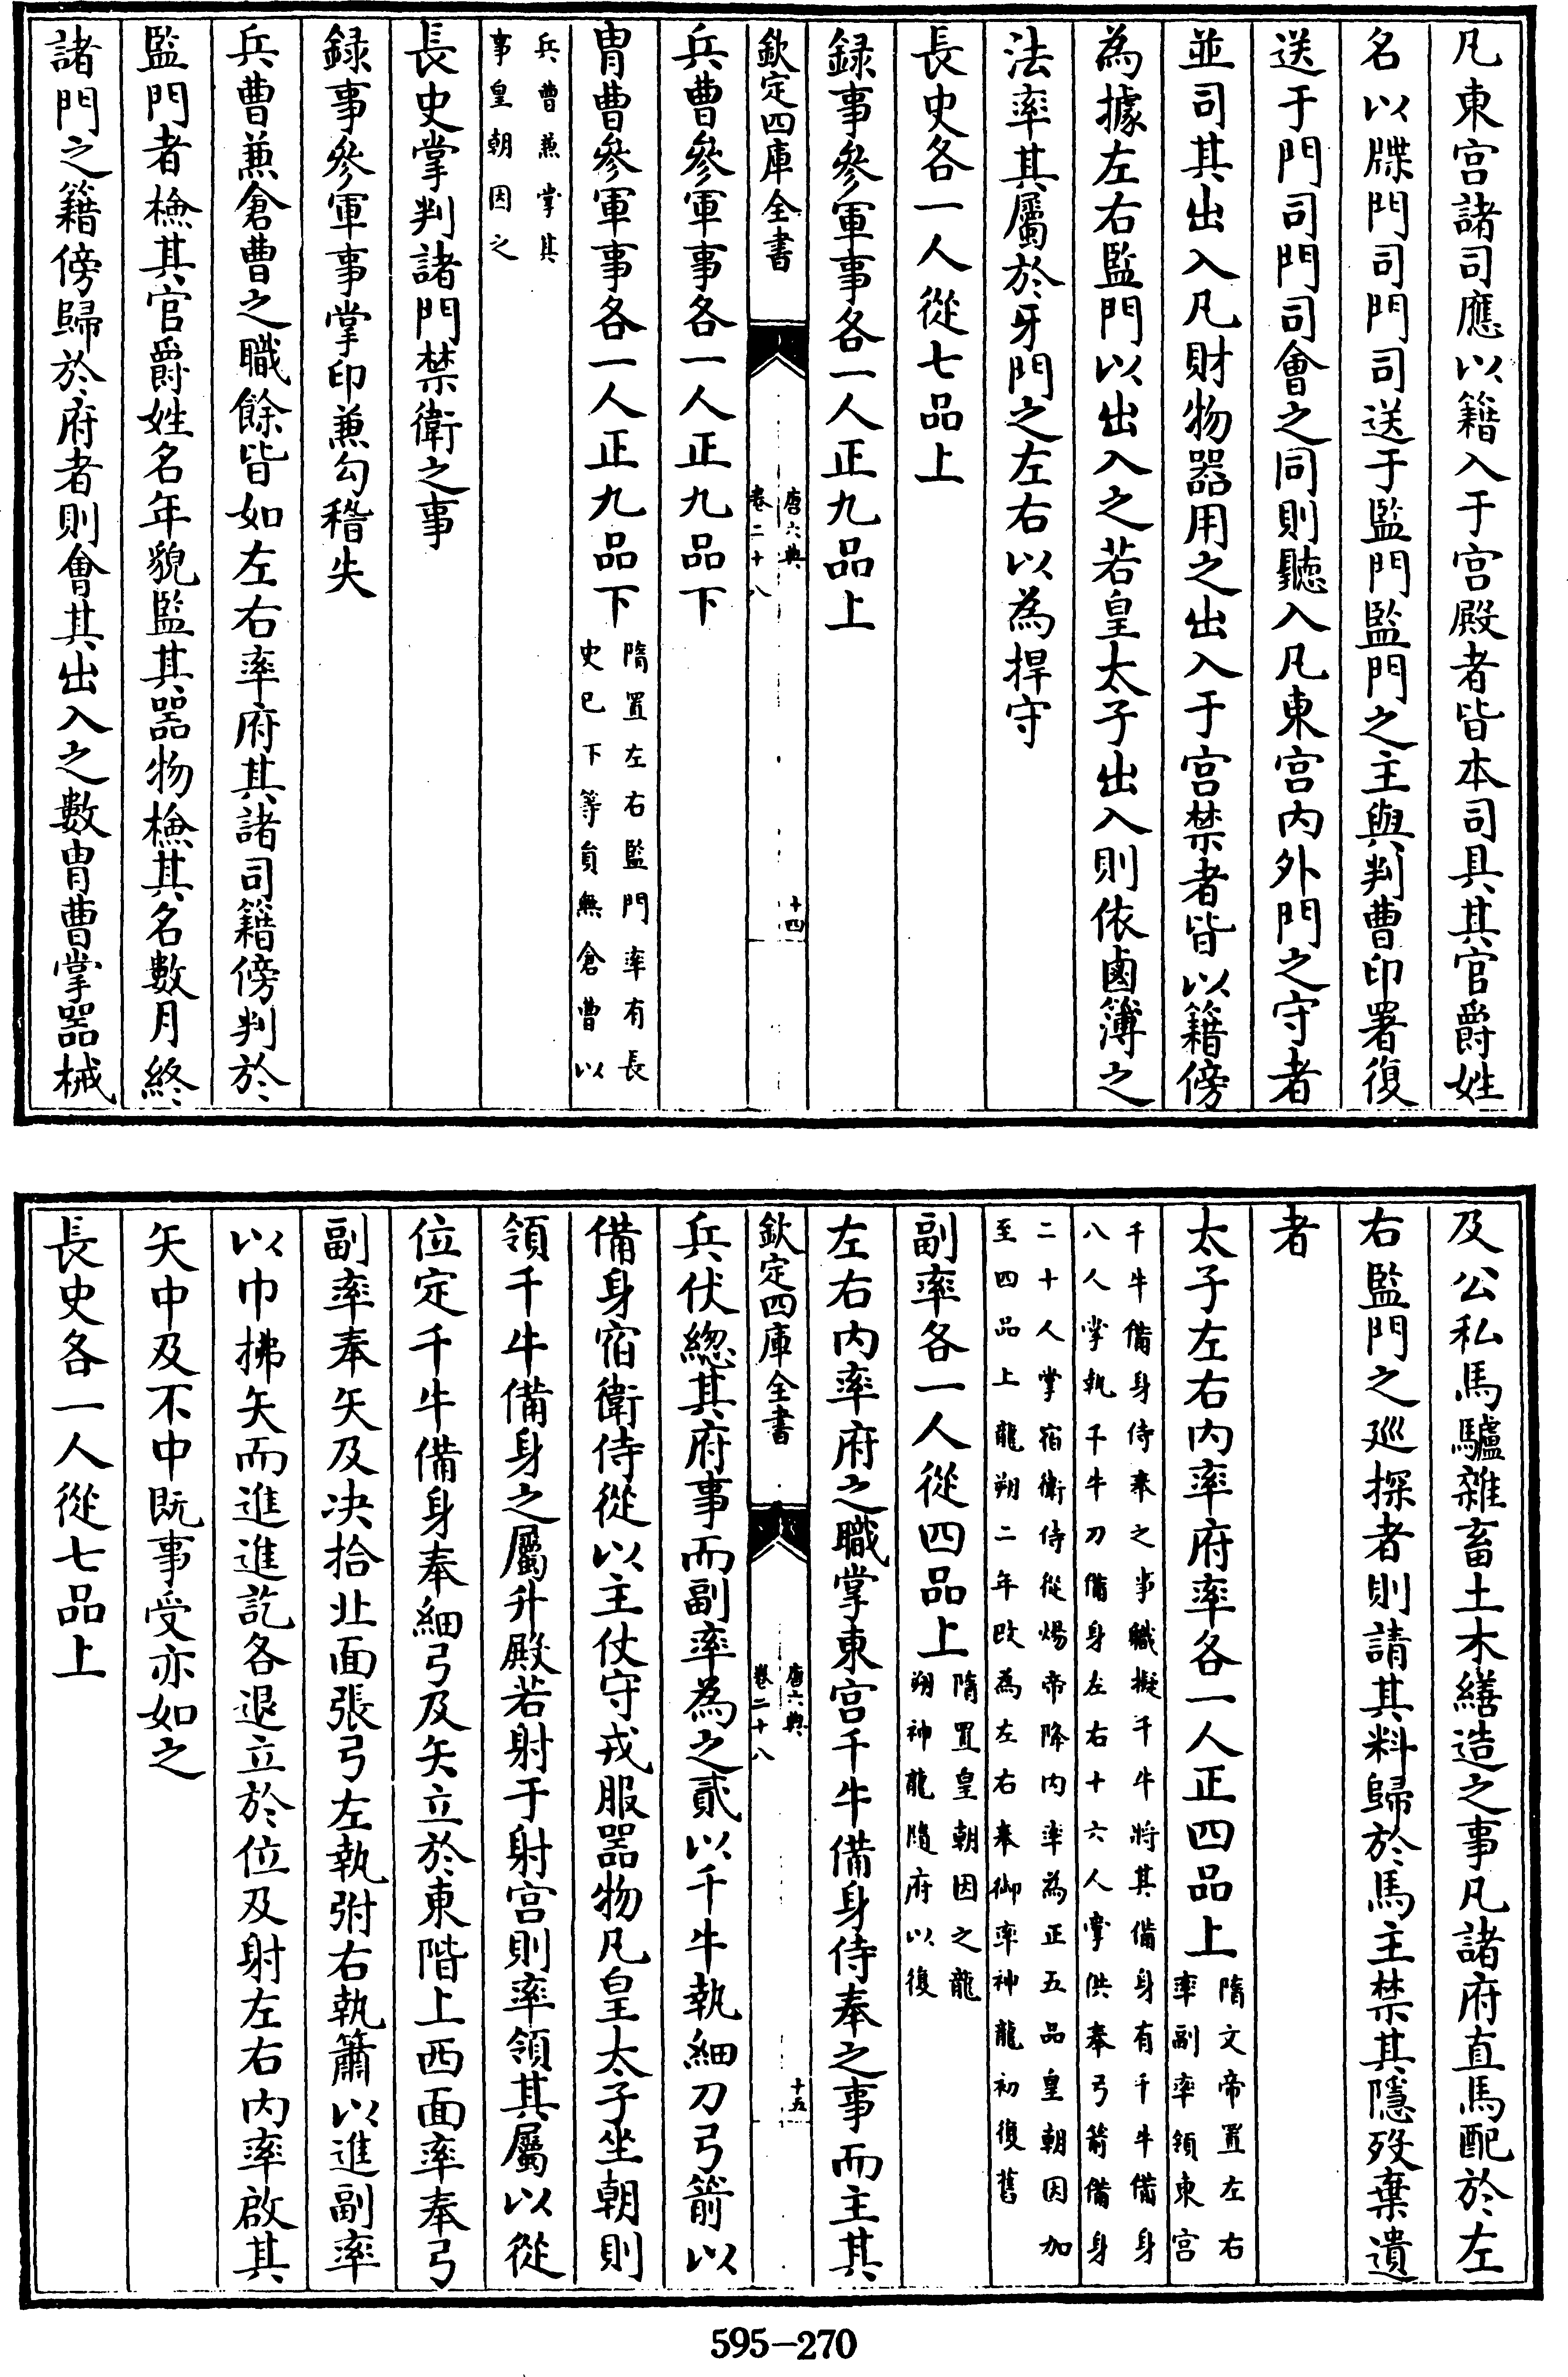 凡東宫諸司應以籍入于宫殿者皆本司具其官爵姓
名以牒門司門司送于監門監門之主與判曹印署復
送于門司門司會之同則聽入凡東宫内外門之守者
並司其出入凡財物器用之出入于宫禁者皆以籍傍
為據左右監門以出入之若皇太子出入則依鹵簿之
法率其屬於牙門之左右以為捍守
長史各一人從七品上
録事參軍事各一人正九品上
欽定四庫全書
唐六典
卷二十八
十四
兵曹參軍事各一人正九品下
胄曹參軍事各一人正九品下
隋置左右監門率有長
史已下等員無倉曹以
兵曹兼掌其
事皇朝因之
長史掌判諸門禁衛之事
録事參軍事掌印兼勾稽失
兵曹兼倉曹之職餘皆如左右率府其諸司籍傍判於
監門者檢其官爵姓名年貌監其器物檢其名數月終
諸門之籍傍歸於府者則會其出入之數胄曹掌器械
及公私馬驢雜畜土木繕造之事凡諸府直馬配於左
右監門之廵探者則請其料歸於馬主禁其隱歿棄遺
者
太子左右内率府率各一人正四品上
隋文帝置左右
率副率領東宫
千牛備身侍奉之事職擬千牛將其備身有千牛備身
八人掌執千牛刀備身左右十六人掌供奉弓箭備身
二十人掌宿衛侍從煬帝降内率為正五品皇朝因加
至四品上龍朔二年改為左右奉御率神龍初復舊
副率各一人從四品上
隋置皇朝因之龍
朔神龍隨府以復
左右内率府之職掌東宫千牛備身侍奉之事而主其
欽定四庫全書
唐六典
卷二十八
十五
兵仗緫其府事而副率為之貳以千牛執細刀弓箭以
備身宿衛侍從以主仗守戎服器物凡皇太子坐朝則
領千牛備身之屬升殿若射于射宫則率領其屬以從
位定千牛備身奉細弓及矢立於東階上西面率奉弓
副率奉矢及决拾北面張弓左執弣右執簫以進副率
以巾拂矢而進進訖各退立於位及射左右内率啟其
矢中及不中既事受亦如之
長史各一人從七品上
595-270